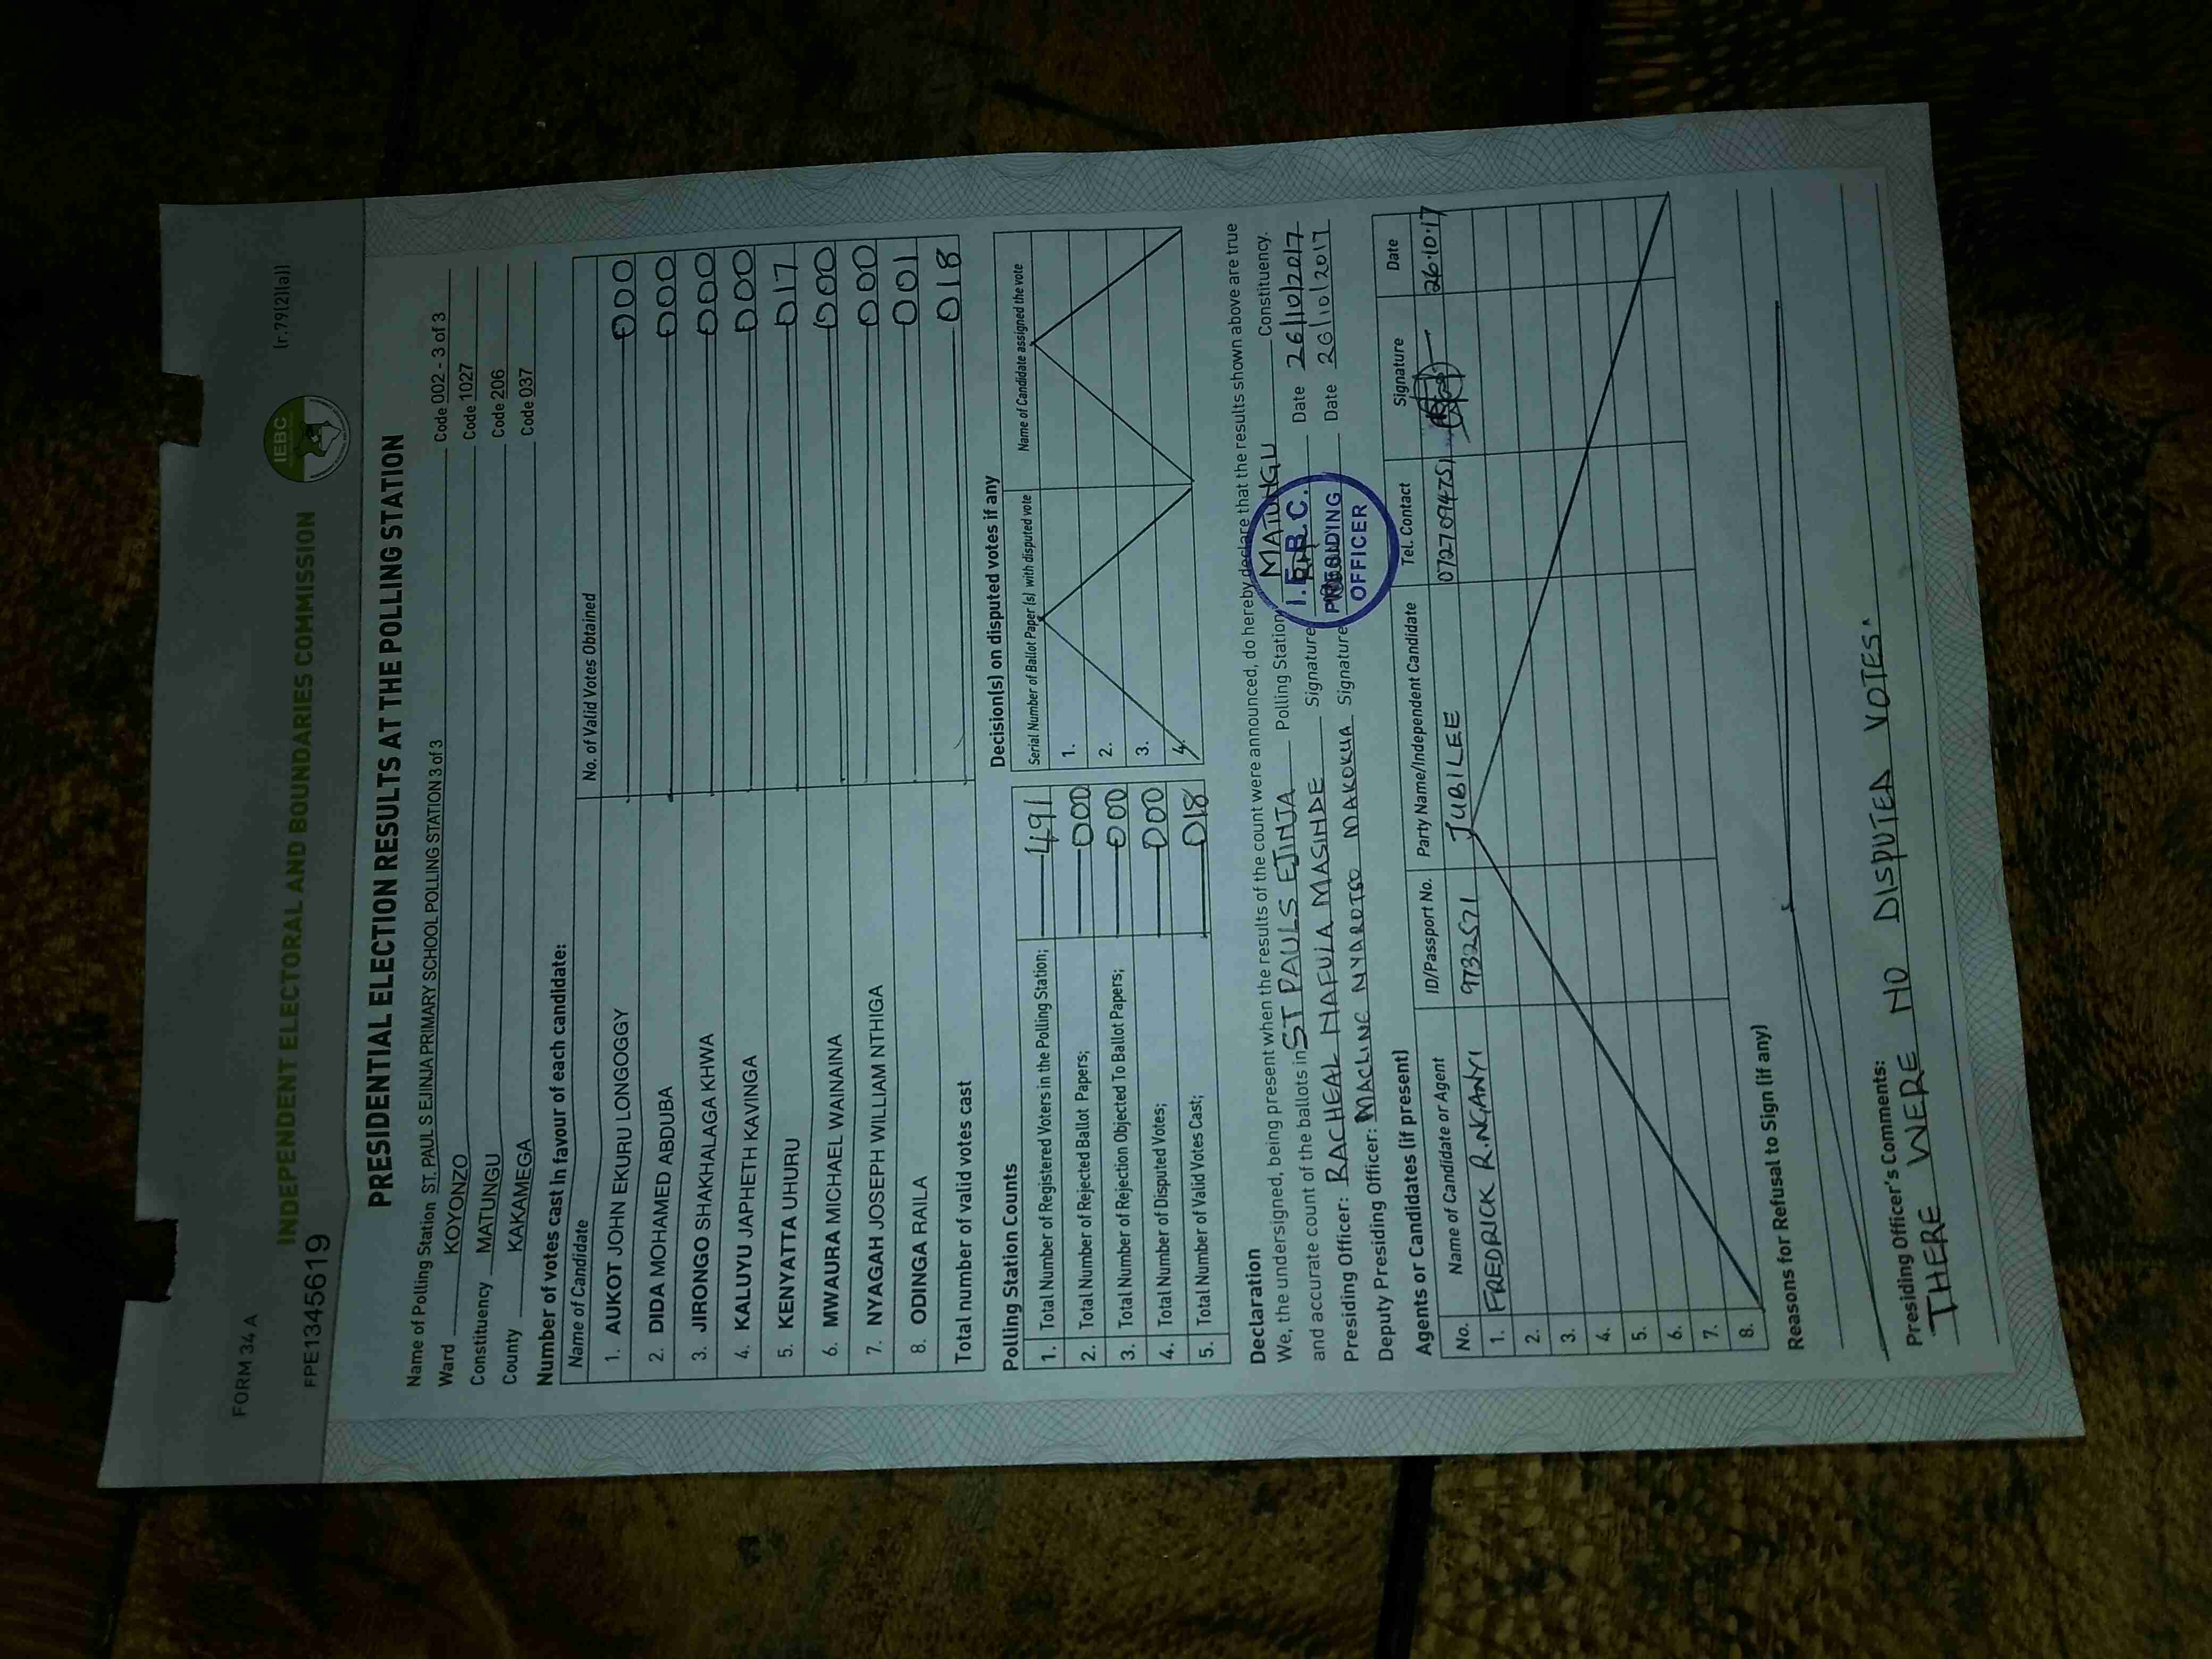 FORM 34 A
(r.79(2)(a))
IEBC
INDEPENDENT ELECTORAL AND BOUNDARIES COMMISSION
FPE1345619
PRESIDENTIAL ELECTION RESULTS AT THE POLLING STATION
Name of Polling Station ST. PAUL S EJINJA PRIMARY SCHOOL POLLING STATION 3 of 3 Code 002 - 3 of 3
Ward KOYONZO Code 1027
Constituency MATUNGU Code 206
County KAKAMEGA Code 037
Number of votes cast in favour of each candidate:
Name of Candidate No. of Valid Votes Obtained
1. AUKOT JOHN EKURU LONGOGGY 000
2. DIDA MOHAMED ABDUBA 000
3. JIRONGO SHAKHALAGA KHWA 000
4. KALUYU JAPHETH KAVINGA 000
5. KENYATTA UHURU 017
6. MWAURA MICHAEL WAINAINA 000
7. NYAGAH JOSEPH WILLIAM NTHIGA 000
8. ODINGA RAILA 001
Total number of valid votes cast 018
Polling Station Counts
1. Total Number of Registered Voters in the Polling Station; 491
2. Total Number of Rejected Ballot Papers; 000
3. Total Number of Rejection Objected To Ballot Papers; 000
4. Total Number of Disputed Votes; 000
5. Total Number of Valid Votes Cast; 018
Decision(s) on disputed votes if any
Serial Number of Ballot Paper (s) with disputed vote Name of Candidate assigned the vote
1.
2.
3.
4.
Declaration
We, the undersigned, being present when the results of the count were announced, do hereby declare that the results shown above are true
and accurate count of the ballots in ST PAULS EJINJA Polling Station, MATUNGU Constituency.
Presiding Officer: RACHEAL NAFULA MASINDE Signature Date 26/10/2017
Deputy Presiding Officer: MACLINE NYAROTSO MAKOKHA Signature Date 26/10/2017
I.E.B.C.
PRESIDING
OFFICER
Agents or Candidates (if present)
No. Name of Candidate or Agent ID/Passport No. Party Name/Independent Candidate Tel. Contact Signature Date
1. FREDRICK R.NGANYI 9732571 JUBILEE 0727094751 26.10.17
2.
3.
4.
5.
6.
7.
8.
Reasons for Refusal to Sign (if any)
Presiding Officer's Comments:
THERE WERE NO DISPUTED VOTES.